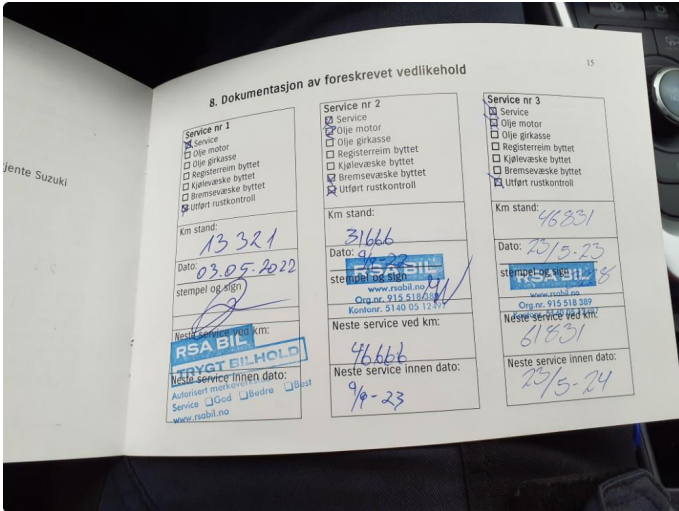 15
8. Dokumentasjon av foreskrevet vedlikehold
jente Suzuki
Service nr 1
Service
Olje motor
Olje girkasse
Registerreim byttet
Kjølevæske byttet
Bremsevæske byttet
Utført rustkontroll
Km stand:
13 321
Dato:
03.05-2022
stempel og sign
Neste service ved km:
RSA BIL
TRYGT BILHOLD
Neste service innen dato:
Autorisert
Service God Bedre Best
www.rsabil.no
Service nr 2
Service
Olje motor
Olje girkasse
Registerreim byttet
Kjølevæske byttet
Bremsevæske byttet
Utført rustkontroll
Km stand:
31666
Dato:
9/9-22
RSA BIL
stempel og sign
www.rsabil.no
Org.nr. 915 518 389
Kontonr. 5140 05 12497
Neste service ved km:
46666
Neste service innen dato:
9/9-23
Service nr 3
Service
Olje motor
Olje girkasse
Registerreim byttet
Kjølevæske byttet
Bremsevæske byttet
Utført rustkontroll
Km stand:
46831
Dato:
23/5-23
stempel og sign
RSA BIL
www.rsabil.no
Org.nr. 915 518 389
Kontonr. 5140 05 12497
Neste service ved km:
61831
Neste service innen dato:
23/5-24